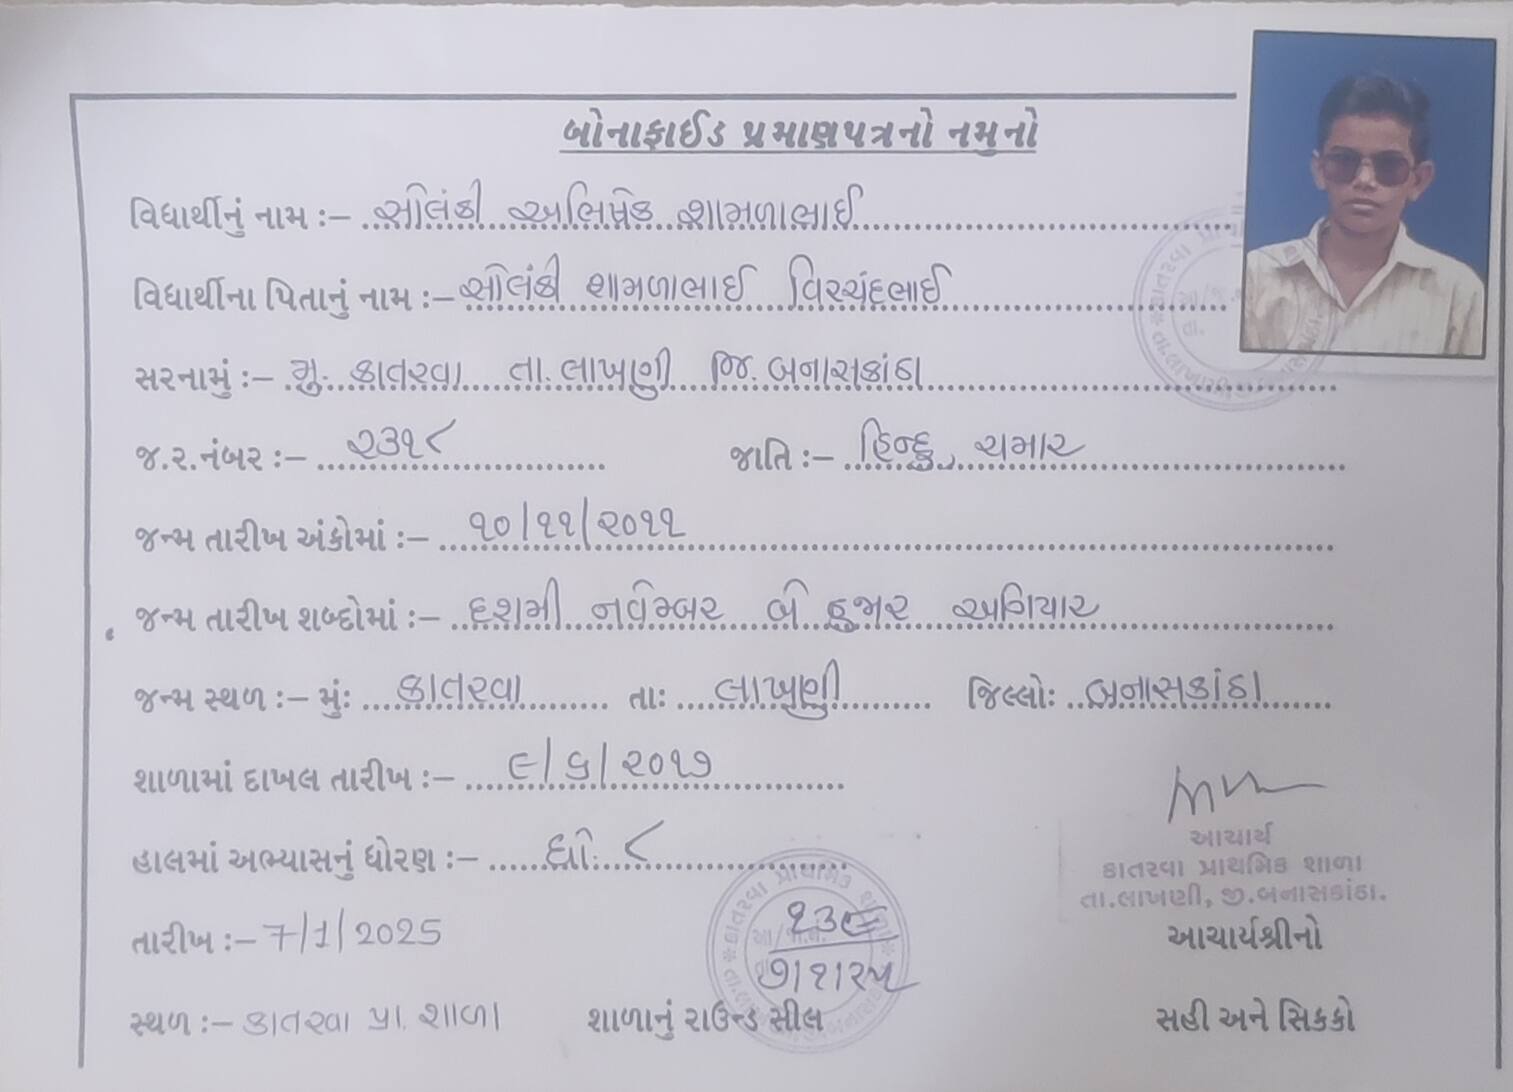 બોનાફાઈડ પ્રમાણપત્રનો નમુનો
વિદ્યાર્થીનું નામ :– સોલંકી અભિષેક શામળાભાઈ
વિદ્યાર્થીના પિતાનું નામ :– સોલંકી શામળાભાઈ વિરચંદભાઈ
સરનામું :– મુ. કાતરવા તા. લાખણી જિ. બનાસકાંઠા
જ.ર.નંબર :– ૨૩૧૮ જાતિ :– હિન્દુ, ચમાર
જન્મ તારીખ અંકોમાં :– ૧૦/૧૧/૨૦૧૧
જન્મ તારીખ શબ્દોમાં :– દશમી નવેમ્બર બે હજાર અગિયાર
જન્મ સ્થળ :– મું: કાતરવા તા: લાખણી જિલ્લો: બનાસકાંઠા
શાળામાં દાખલ તારીખ :– ૯/૬/૨૦૧૭
હાલમાં અભ્યાસનું ધોરણ :– ધો. ૮
આચાર્ય
કાતરવા પ્રાથમિક શાળા
તા.લાખણી, જી.બનાસકાંઠા.
તારીખ :– 7/1/2025
કાતરવા પ્રાથમિક શાળા
૧૩૯
૭/૧/૨૫
આચાર્યશ્રીનો
સ્થળ :– કાતરવા પ્રા. શાળા શાળાનું રાઉન્ડ સીલ સહી અને સિક્કો